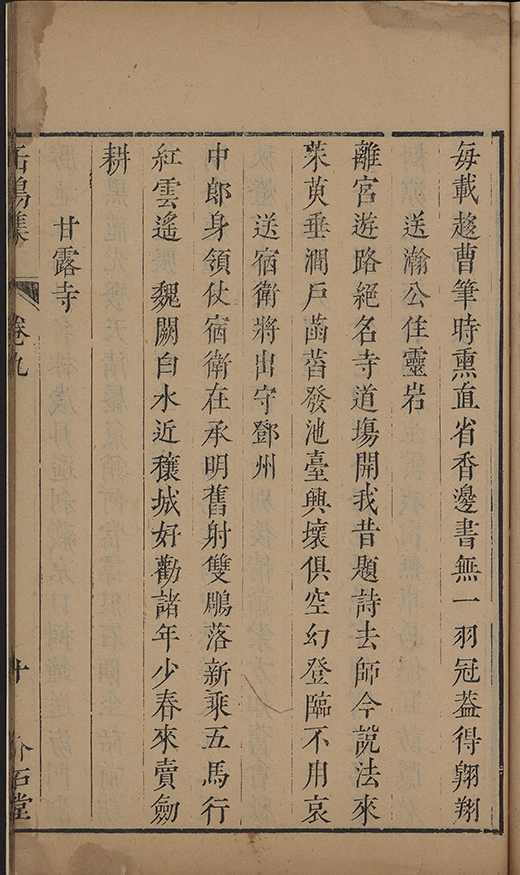 每載趨曹筆時熏直省香邊書無一羽冠葢得翺翔
送瀚公住靈岩
離宮遊路絕名寺道塲開我昔題詩去師今說法來
茱萸垂澗戶菡萏發池臺興壞俱空幻登臨不用哀
送宿衛將出守鄧州
中郎身領仗宿衛在承明舊射雙鵰落新乘五馬行
紅雲遙魏闕白水近穰城好勸諸年少春來賣劒
耕
甘露寺
卷九
十
介石堂